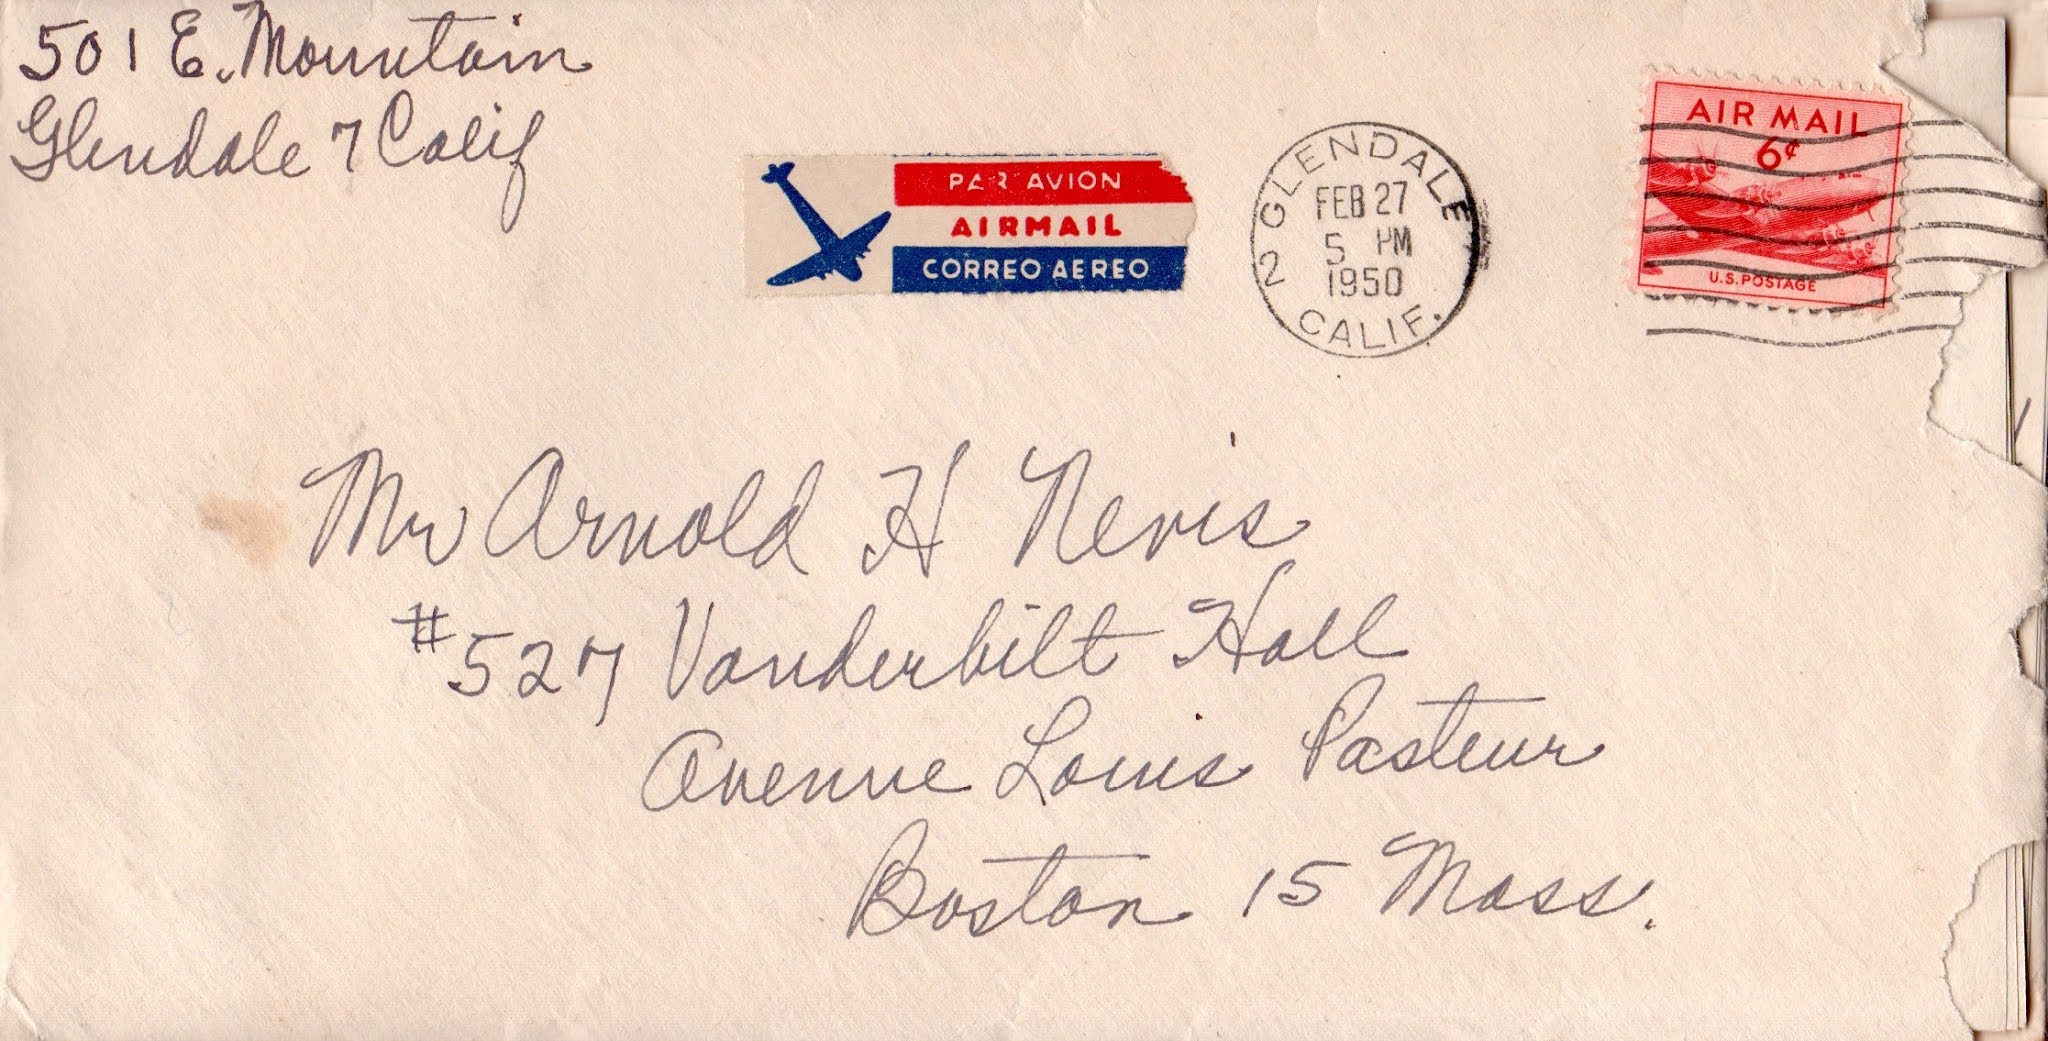 501 E. Mountain
Glendale 7 Calif
PAR AVION
AIRMAIL
CORREO AEREO
GLENDALE
FEB 27
5 PM
1950
2
CALIF.
AIR MAIL
6¢
U.S. POSTAGE
Mr Arnold H Nevis
#527 Vanderbilt Hall
Avenue Louis Pasteur
Boston 15 Mass.